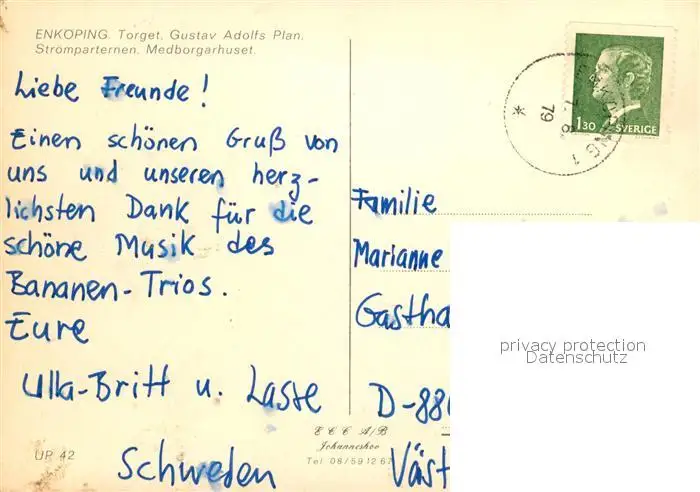 ENKÖPING. Torget. Gustav Adolfs Plan.
Strömparternen. Medborgarhuset.
Liebe Freunde!
Einen schönen Gruß von
uns und unseren herz-
lichsten Dank für die
schöne Musik des
Bananen-Trios.
Eure
Ulla-Britt u. Lasse
Schweden
UP 42
1.30 SVERIGE
ENKÖPING 1
79
*
Familie
Marianne
Gastha
D-88
Väst
E C C A/B
Johanneshov
Tel 08/59 12 67
privacy protection
Datenschutz